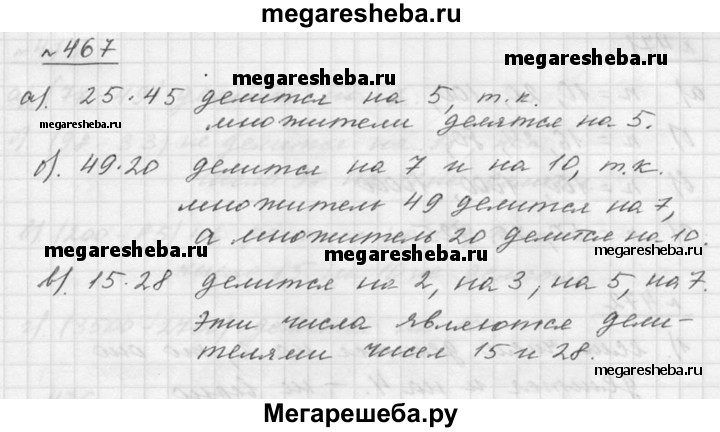 megaresheba.ru
№ 467
megaresheba.ru
а). 25·45 делится на 5, т.к.
megaresheba.ru
множители делятся на 5.
megaresheba.ru
б). 49·20 делится на 7 и на 10, т.к.
множитель 49 делится на 7,
а множитель 20 делится на 10.
megaresheba.ru megaresheba.ru megaresheba.ru
в). 15·28 делится на 2, на 3, на 5, на 7.
Эти числа являются дели-
megaresheba.ru megaresheba.ru
телями чисел 15 и 28.
megaresheba.ru
Мегарешеба.ру